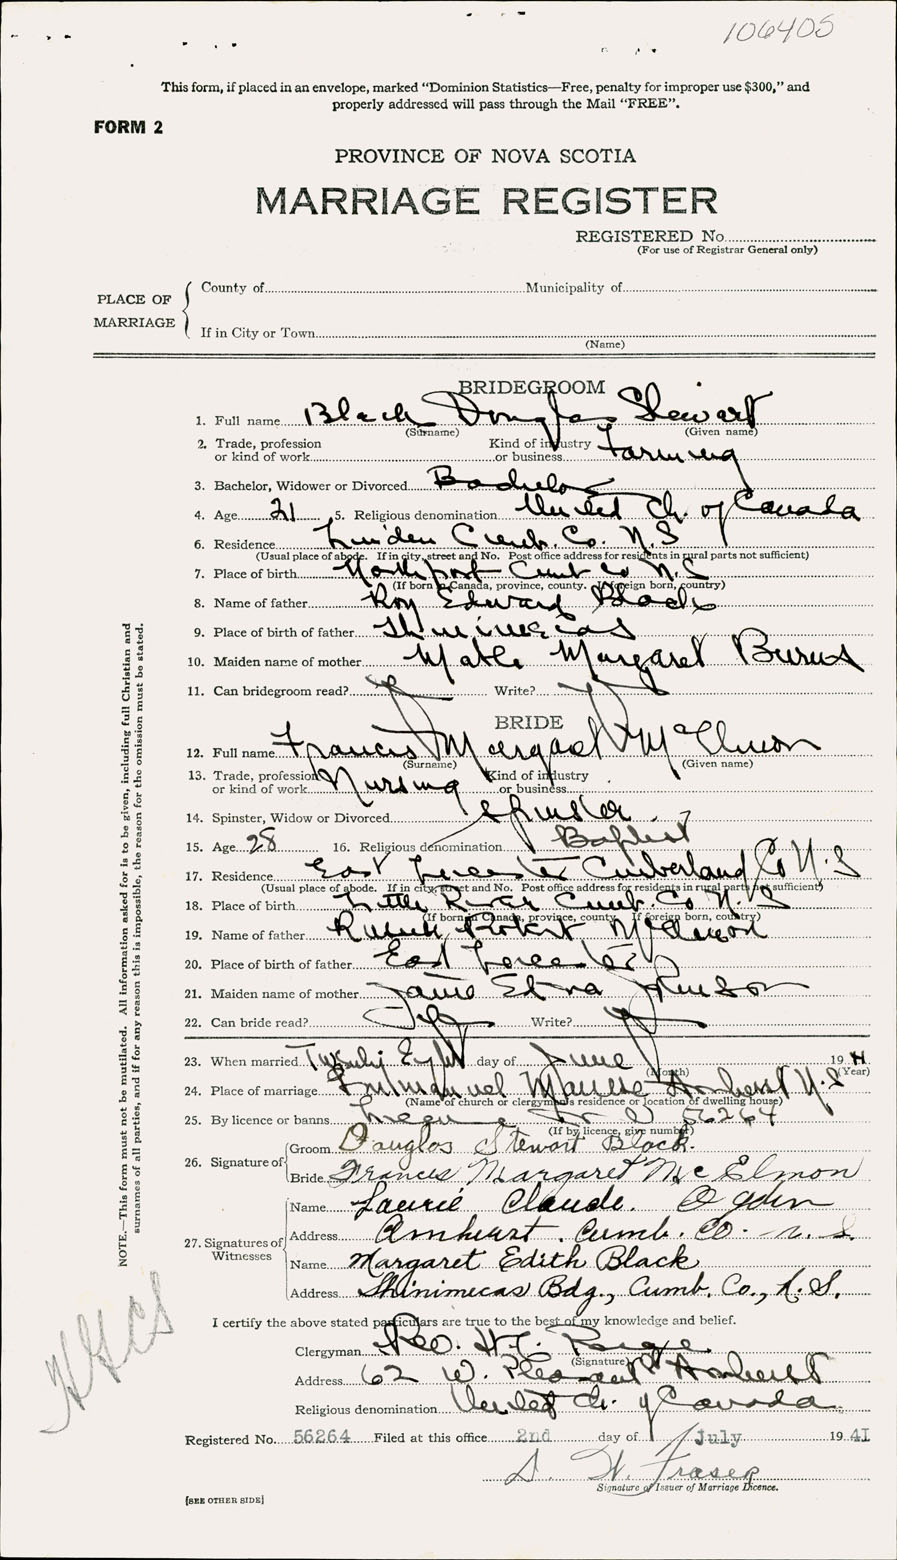 106405
This form, if placed in an envelope, marked "Dominion Statistics—Free, penalty for improper use $300," and
properly addressed will pass through the Mail "FREE".
FORM 2
PROVINCE OF NOVA SCOTIA
MARRIAGE REGISTER
REGISTERED No.
(For use of Registrar General only)
PLACE OF MARRIAGE
County of Municipality of
If in City or Town
(Name)
BRIDEGROOM
1. Full name Black Douglas Stewart
(Surname) (Given name)
2. Trade, profession or kind of work Kind of industry or business Farming
3. Bachelor, Widower or Divorced Bachelor
4. Age 21 5. Religious denomination United Ch. of Canada
6. Residence Linden Cumb. Co. N.S
(Usual place of abode. If in city, street and No. Post office address for residents in rural parts not sufficient)
7. Place of birth Northport Cumb Co N.S
(If born in Canada, province, county. If foreign born, country)
8. Name of father Roy Edward Black
9. Place of birth of father Shinimecas
10. Maiden name of mother Mable Margaret Burns
11. Can bridegroom read? yes Write? yes
BRIDE
12. Full name Francis Margaret McElmon
(Surname) (Given name)
13. Trade, profession or kind of work Nursing Kind of industry or business
14. Spinster, Widow or Divorced Spinster
15. Age 28 16. Religious denomination Baptist
17. Residence East Leicester Cumberland Co N.S
(Usual place of abode. If in city, street and No. Post office address for residents in rural parts not sufficient)
18. Place of birth Little River Cumb. Co N.S
(If born in Canada, province, county. If foreign born, country)
19. Name of father Robert McElmon
20. Place of birth of father East Leicester
21. Maiden name of mother Johnson
22. Can bride read? yes Write? yes
23. When married Twenty Eight day of June 19 41
(Month) (Year)
24. Place of marriage Immanuel Manse Amherst N.S
(Name of church or clergyman's residence or location of dwelling house)
25. By licence or banns License No 56264
(If by licence, give number)
26. Signature of
Groom Douglas Stewart Black.
Bride Frances Margaret McElmon
27. Signatures of Witnesses
Name Laurie Claude Ogden
Address Amherst. Cumb. Co. N. S.
Name Margaret Edith Black
Address Shinimecas Bdg., Cumb. Co., N. S.
I certify the above stated particulars are true to the best of my knowledge and belief.
Clergyman Rev. H.T.
(Signature)
Address 62 W. Pleasant St Amherst
Religious denomination United Ch. of Canada
Registered No. 56264 Filed at this office 2nd day of July 19 41
S. W. Fraser
Signature of Issuer of Marriage Licence.
[SEE OTHER SIDE]
NOTE.—This form must not be mutilated. All information asked for is to be given, including full Christian and
surnames of all parties, and if for any reason this is impossible, the reason for the omission must be stated.